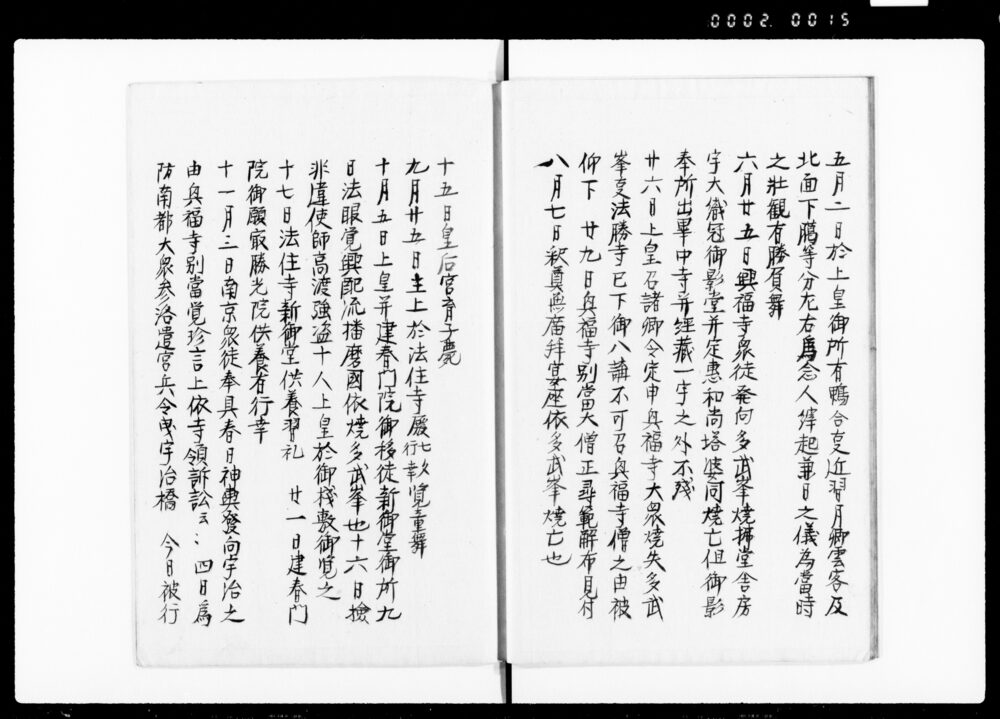 0002.0015
五月二日於上皇御所有鴨合事近習月卿雲客及
北面下臈等分左右為念人縡起兼日之儀為當時
之壮觀有勝負舞
六月廿五日興福寺衆徒発向多武峯焼拂堂舎房
宇大織冠御影堂并定惠和尚塔婆同焼亡但御影
奉所出畢中寺并經藏一宇之外不残
廿六日上皇召諸卿令定申興福寺大衆焼失多武
峯事法勝寺已下御八講不可召興福寺僧之由被
仰下　廿九日興福寺別當大僧正尋範解布見付
八月七日釈奠無廟拜宴座依多武峯焼亡也
十五日皇后宮育子薨
九月廿五日主上於法住寺殿七々行幸歟覧童舞
十月五日上皇并建春門院御移徒新御堂御所九
日法眼覚興配流播磨國依焼多武峯也十六日檢
非違使師高渡強盗十人上皇於御棧敷御覧之
十七日法住寺新御堂供養習礼　廿一日建春門
院御願最勝光院供養有行幸
十一月三日南京衆徒奉具春日神輿發向宇治之
由興福寺別當覚珍言上依寺領訴訟云々　四日為
防南都大衆参洛遣官兵令曳宇治橋　今日被行